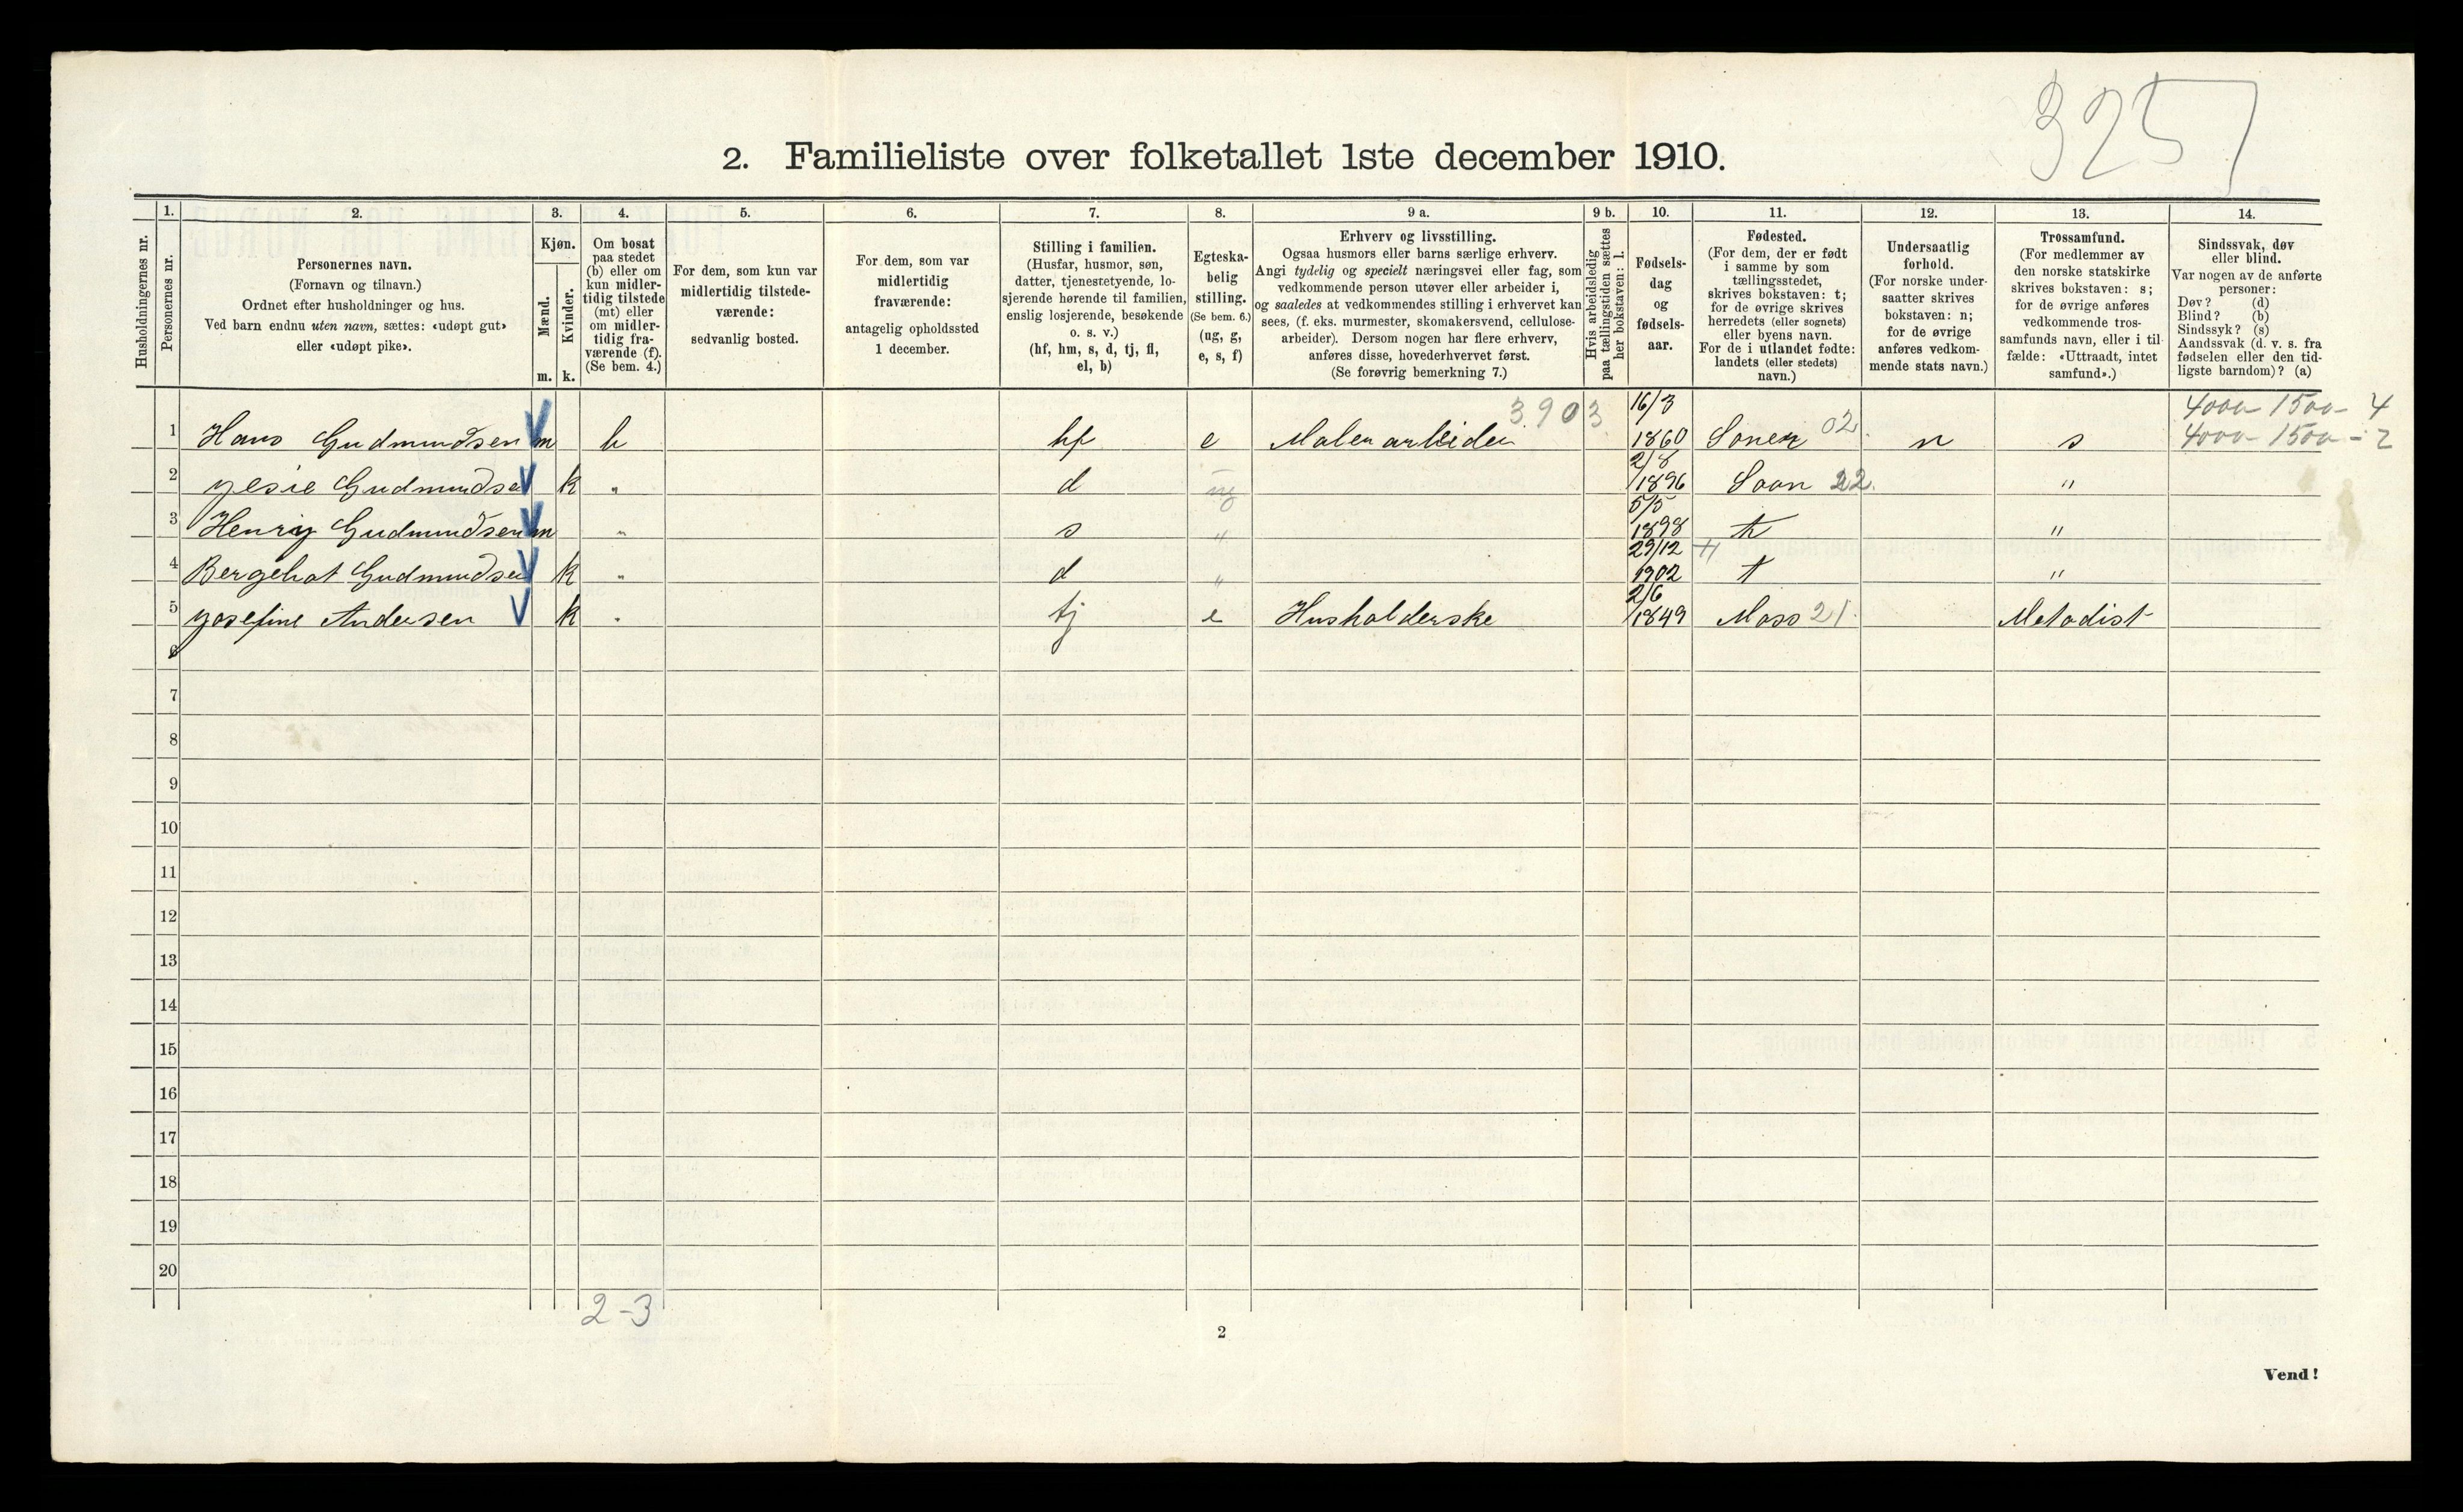 325
2. Familieliste over folketallet 1ste december 1910.
Husholdningernes nr.
1.
Personernes nr.
2.
Personernes navn.
(Fornavn og tilnavn.)
Ordnet efter husholdninger og hus.
Ved barn endnu uten navn, sættes: «udøpt gut»
eller «udøpt pike».
3.
Kjøn.
Mænd.
Kvinder.
m. k.
4.
Om bosat
paa stedet
(b) eller om
kun midler-
tidig tilstede
(mt) eller
om midler-
tidig fra-
værende (f).
(Se bem. 4.)
5.
For dem, som kun var
midlertidig tilstede-
værende:
sedvanlig bosted.
6.
For dem, som var
midlertidig
fraværende:
antagelig opholdssted
1 december.
7.
Stilling i familien.
(Husfar, husmor, søn,
datter, tjenestetyende, lo-
sjerende hørende til familien,
enslig losjerende, besøkende
o. s. v.)
(hf, hm, s, d, tj, fl,
el, b)
8.
Egteska-
belig
stilling.
(Se bem. 6.)
(ug, g,
e, s, f)
9 a.
Erhverv og livsstilling.
Ogsaa husmors eller barns særlige erhverv.
Angi tydelig og specielt næringsvei eller fag, som
vedkommende person utøver eller arbeider i,
og saaledes at vedkommendes stilling i erhvervet kan
sees, (f. eks. murmester, skomakersvend, cellulose-
arbeider). Dersom nogen har flere erhverv,
anføres disse, hovederhvervet først.
(Se forøvrig bemerkning 7.)
9 b.
Hvis arbeidsledig
paa tællingstiden sættes
her bokstaven: l.
10.
Fødsels-
dag
og
fødsels-
aar.
11.
Fødested.
(For dem, der er født
i samme by som
tællingsstedet,
skrives bokstaven: t;
for de øvrige skrives
herredets (eller sognets)
eller byens navn.
For de i utlandet fødte:
landets (eller stedets)
navn.)
12.
Undersaatlig
forhold.
(For norske under-
saatter skrives
bokstaven: n;
for de øvrige
anføres vedkom-
mende stats navn.)
13.
Trossamfund.
(For medlemmer av
den norske statskirke
skrives bokstaven: s;
for de øvrige anføres
vedkommende tros-
samfunds navn, eller i til-
fælde: «Uttraadt, intet
samfund».)
14.
Sindssvak, døv
eller blind.
Var nogen av de anførte
personer:
Døv? (d)
Blind? (b)
Sindssyk? (s)
Aandssvak (d. v. s. fra
fødselen eller den tid-
ligste barndom)? (a)
3903 16/3 4000-1500-4
1 Hans Gudmundsen m b hf e Malerarbeider 1860 Soner 02 n s 4000-1500-2
2/8
2 yesie Gudmundsen k " d ug 1896 Soon 22. "
5/5
3 Henry Gudmundsen m " s " 1898 t "
29/12
4 Bergehot Gudmundsen k " d " 1902 t "
2/6
5 yosefine Andersen k " tj e Husholderske 1849 Moss 21. Metodist
6
7
8
9
10
11
12
13
14
15
16
17
18
19
20
2-3
2
Vend!